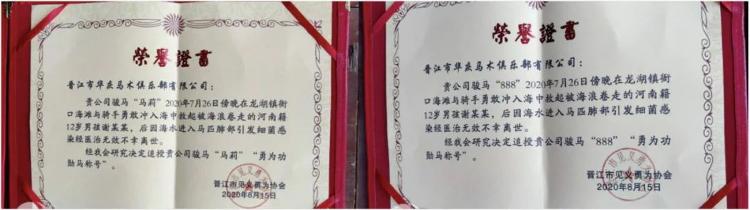 榮譽證書
晋江市华庆马术俱乐部有限公司：
贵公司骏马“马莉”2020年7月26日傍晚在龙湖镇衙
口海滩与骑手勇敢冲入海中救起被海浪卷走的河南籍
12岁男孩谢某某，后因海水进入马匹肺部引发细菌感
染经医治无效不幸离世。
经我会研究决定追授贵公司骏马“马莉”“勇为功
勋马称号”。
晋江市见义勇为协会
2020年8月15日
榮譽證書
晋江市华庆马术俱乐部有限公司：
贵公司骏马“888”2020年7月26日傍晚在龙湖镇衙
口海滩与骑手勇敢冲入海中救起被海浪卷走的河南籍
12岁男孩谢某某，后因海水进入马匹肺部引发细菌感
染经医治无效不幸离世。
经我会研究决定追授贵公司骏马“888”“勇为功
勋马称号”。
晋江市见义勇为协会
2020年8月15日